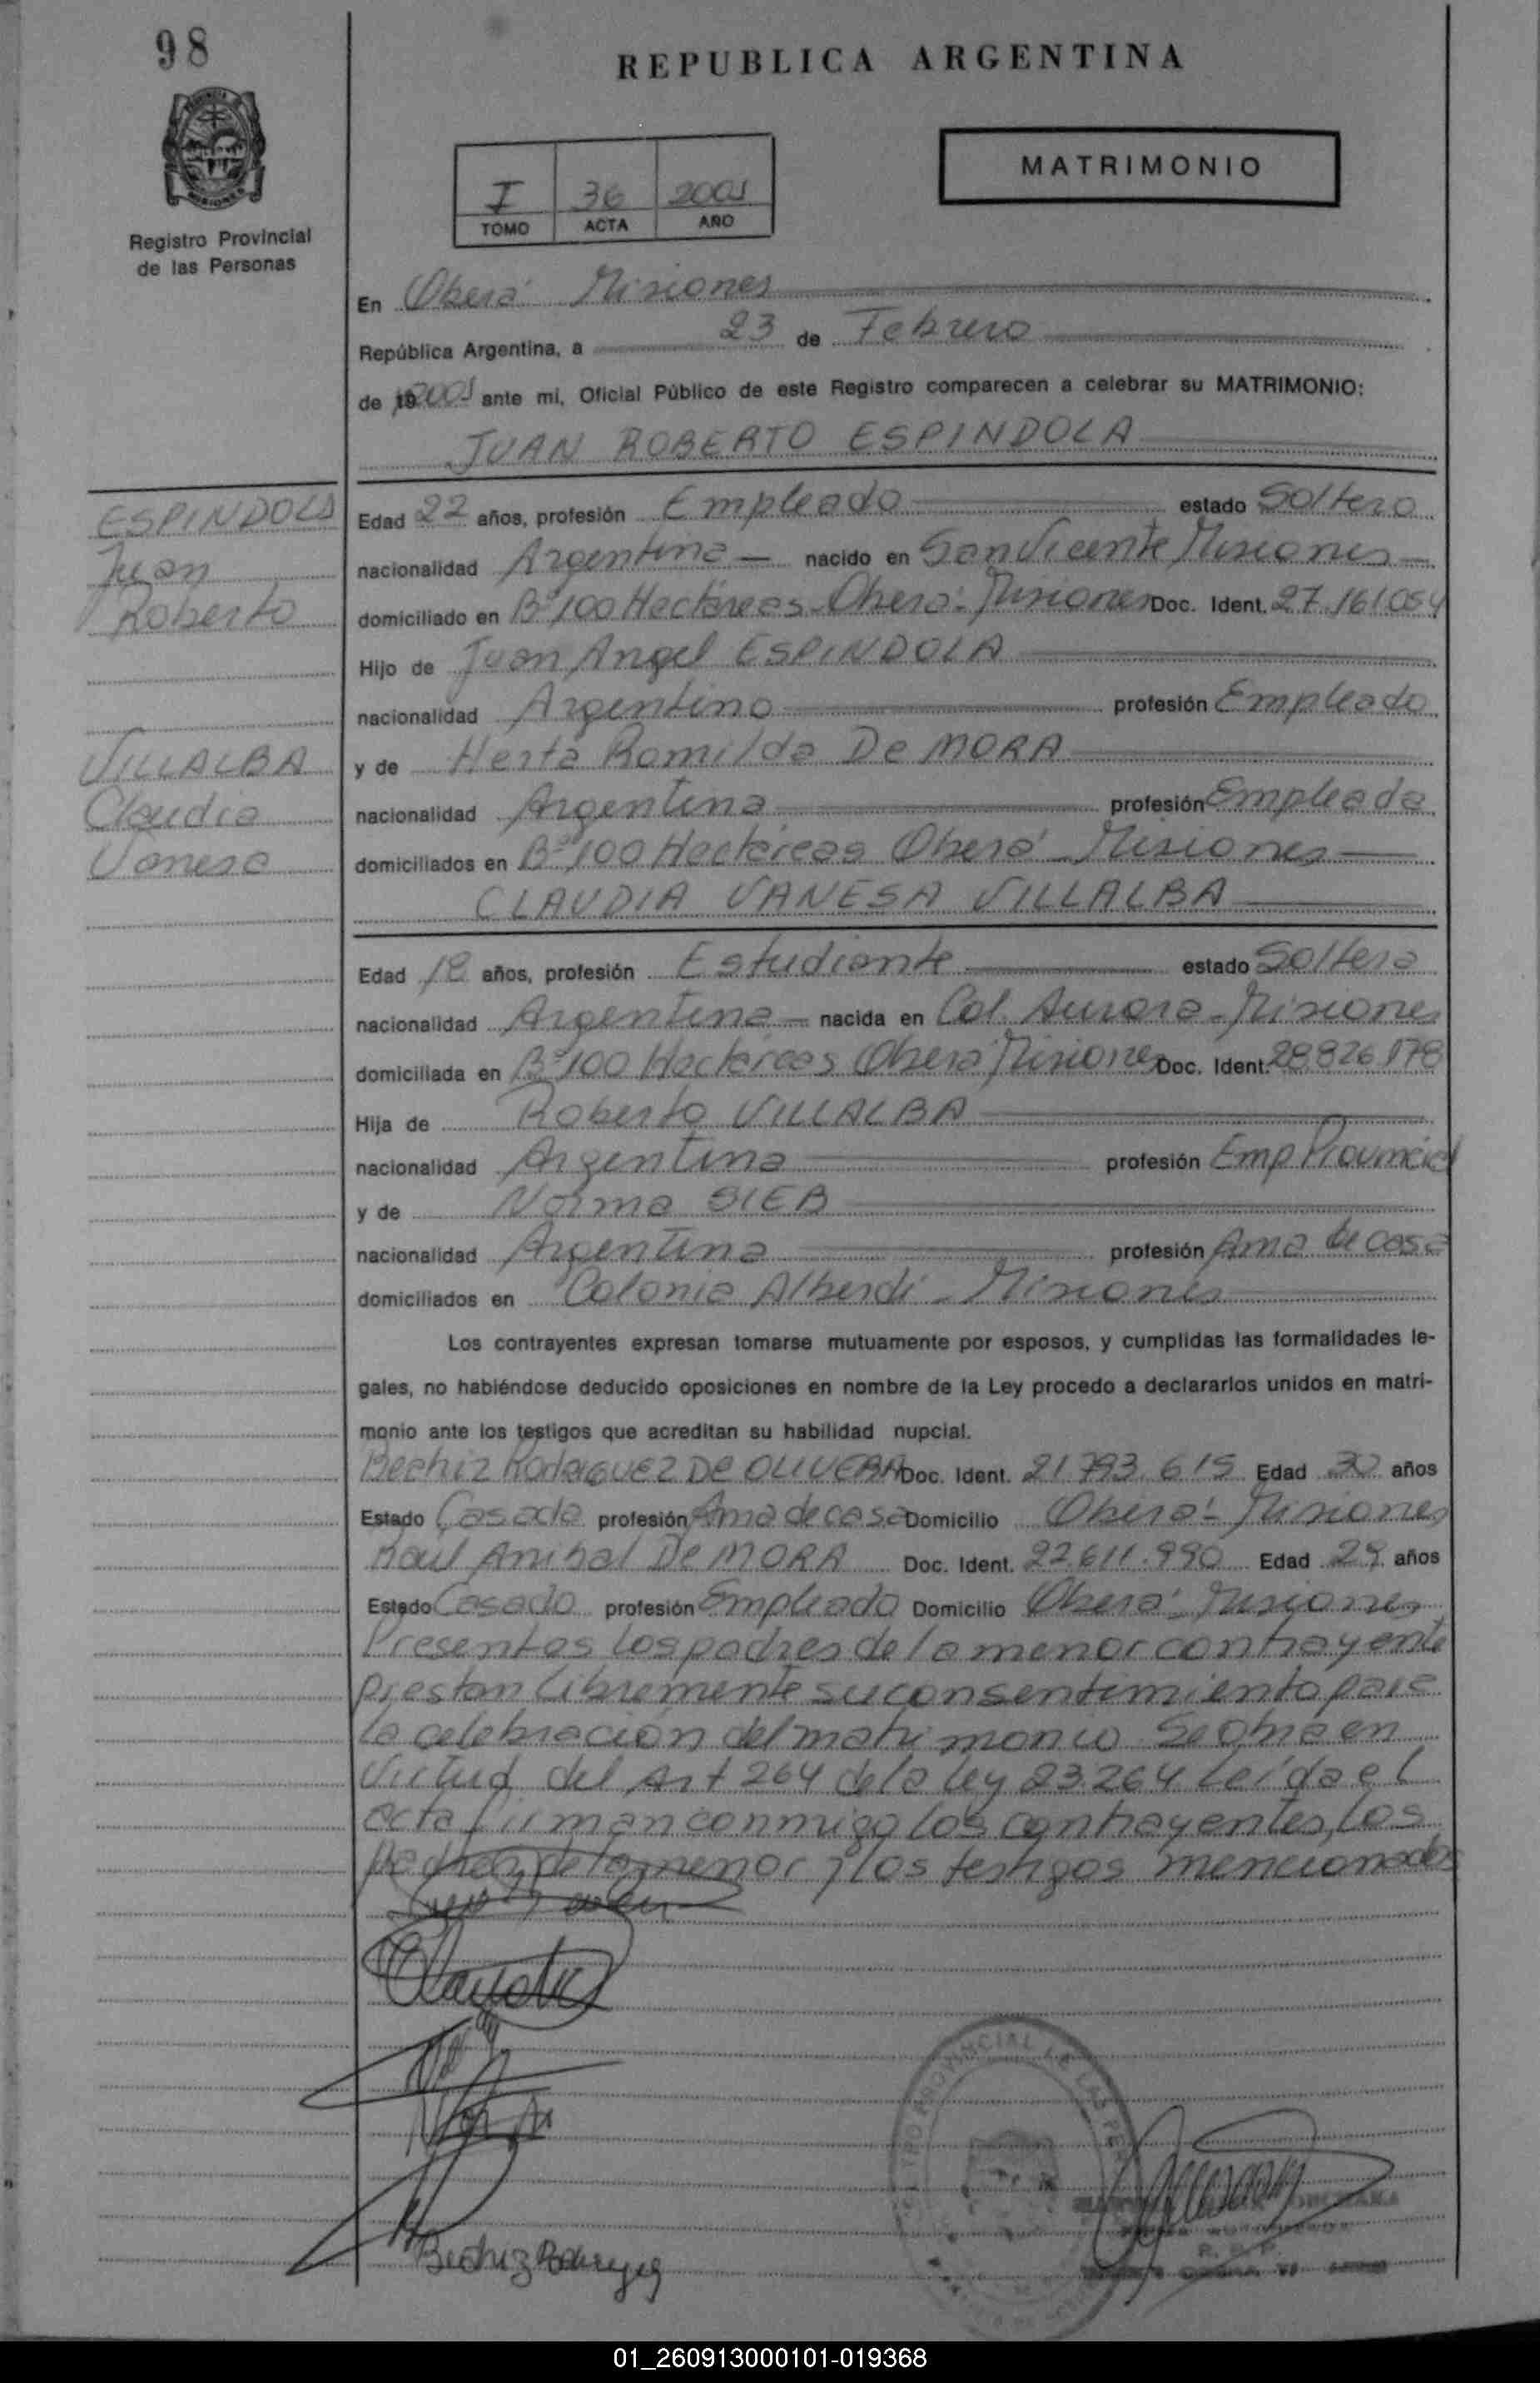 98
REPUBLICA ARGENTINA
MATRIMONIO
I 36 2001
TOMO ACTA AÑO
Registro Provincial
de las Personas
En Oberá Misiones
República Argentina, a 23 de Febrero
de 192001 ante mi, Oficial Público de este Registro comparecen a celebrar su MATRIMONIO:
JUAN ROBERTO ESPINDOLA
ESPINDOLA
Juan
Roberto
VILLALBA
Claudia
Vanesa
Edad 22 años, profesión Empleado estado Soltero
nacionalidad Argentina nacido en San Vicente Misiones
domiciliado en Bº 100 Hectáreas Oberá - Misiones Doc. Ident. 27.161.054
Hijo de Juan Angel ESPINDOLA
nacionalidad Argentino profesión Empleado
y de Herta Romilda De MORA
nacionalidad Argentina profesión Empleada
domiciliados en Bº 100 Hectáreas Oberá - Misiones
CLAUDIA VANESA VILLALBA
Edad 18 años, profesión Estudiante estado Soltera
nacionalidad Argentina nacida en Col. Aurora - Misiones
domiciliada en Bº 100 Hectáreas Oberá Misiones Doc. Ident. 28.826.178
Hija de Roberto VILLALBA
nacionalidad Argentina profesión Emp Provincial
y de Norma SIEB
nacionalidad Argentina profesión Ama de casa
domiciliados en Colonia Alberdi - Misiones
Los contrayentes expresan tomarse mutuamente por esposos, y cumplidas las formalidades le-
gales, no habiéndose deducido oposiciones en nombre de la Ley procedo a declararlos unidos en matri-
monio ante los testigos que acreditan su habilidad nupcial.
Beatriz RodRiGUEZ DE OLIVERA Doc. Ident. 21.793.615 Edad 30 años
Estado Casada profesión Ama de casa Domicilio Oberá - Misiones
Raul Anibal De MORA Doc. Ident. 22.611.990 Edad 29 años
Estado Casado profesión Empleado Domicilio Oberá - Misiones
Presentes los padres de la menor contrayente
prestan libremente su consentimiento para
la celebración del matrimonio. Se obra en
virtud del Art 264 de la ley 23.264 Leída el
acta firman conmigo los contrayentes, los
padres de la menor y los testigos mencionados
Claudia
Beatriz
R. P. P.
01_260913000101-019368